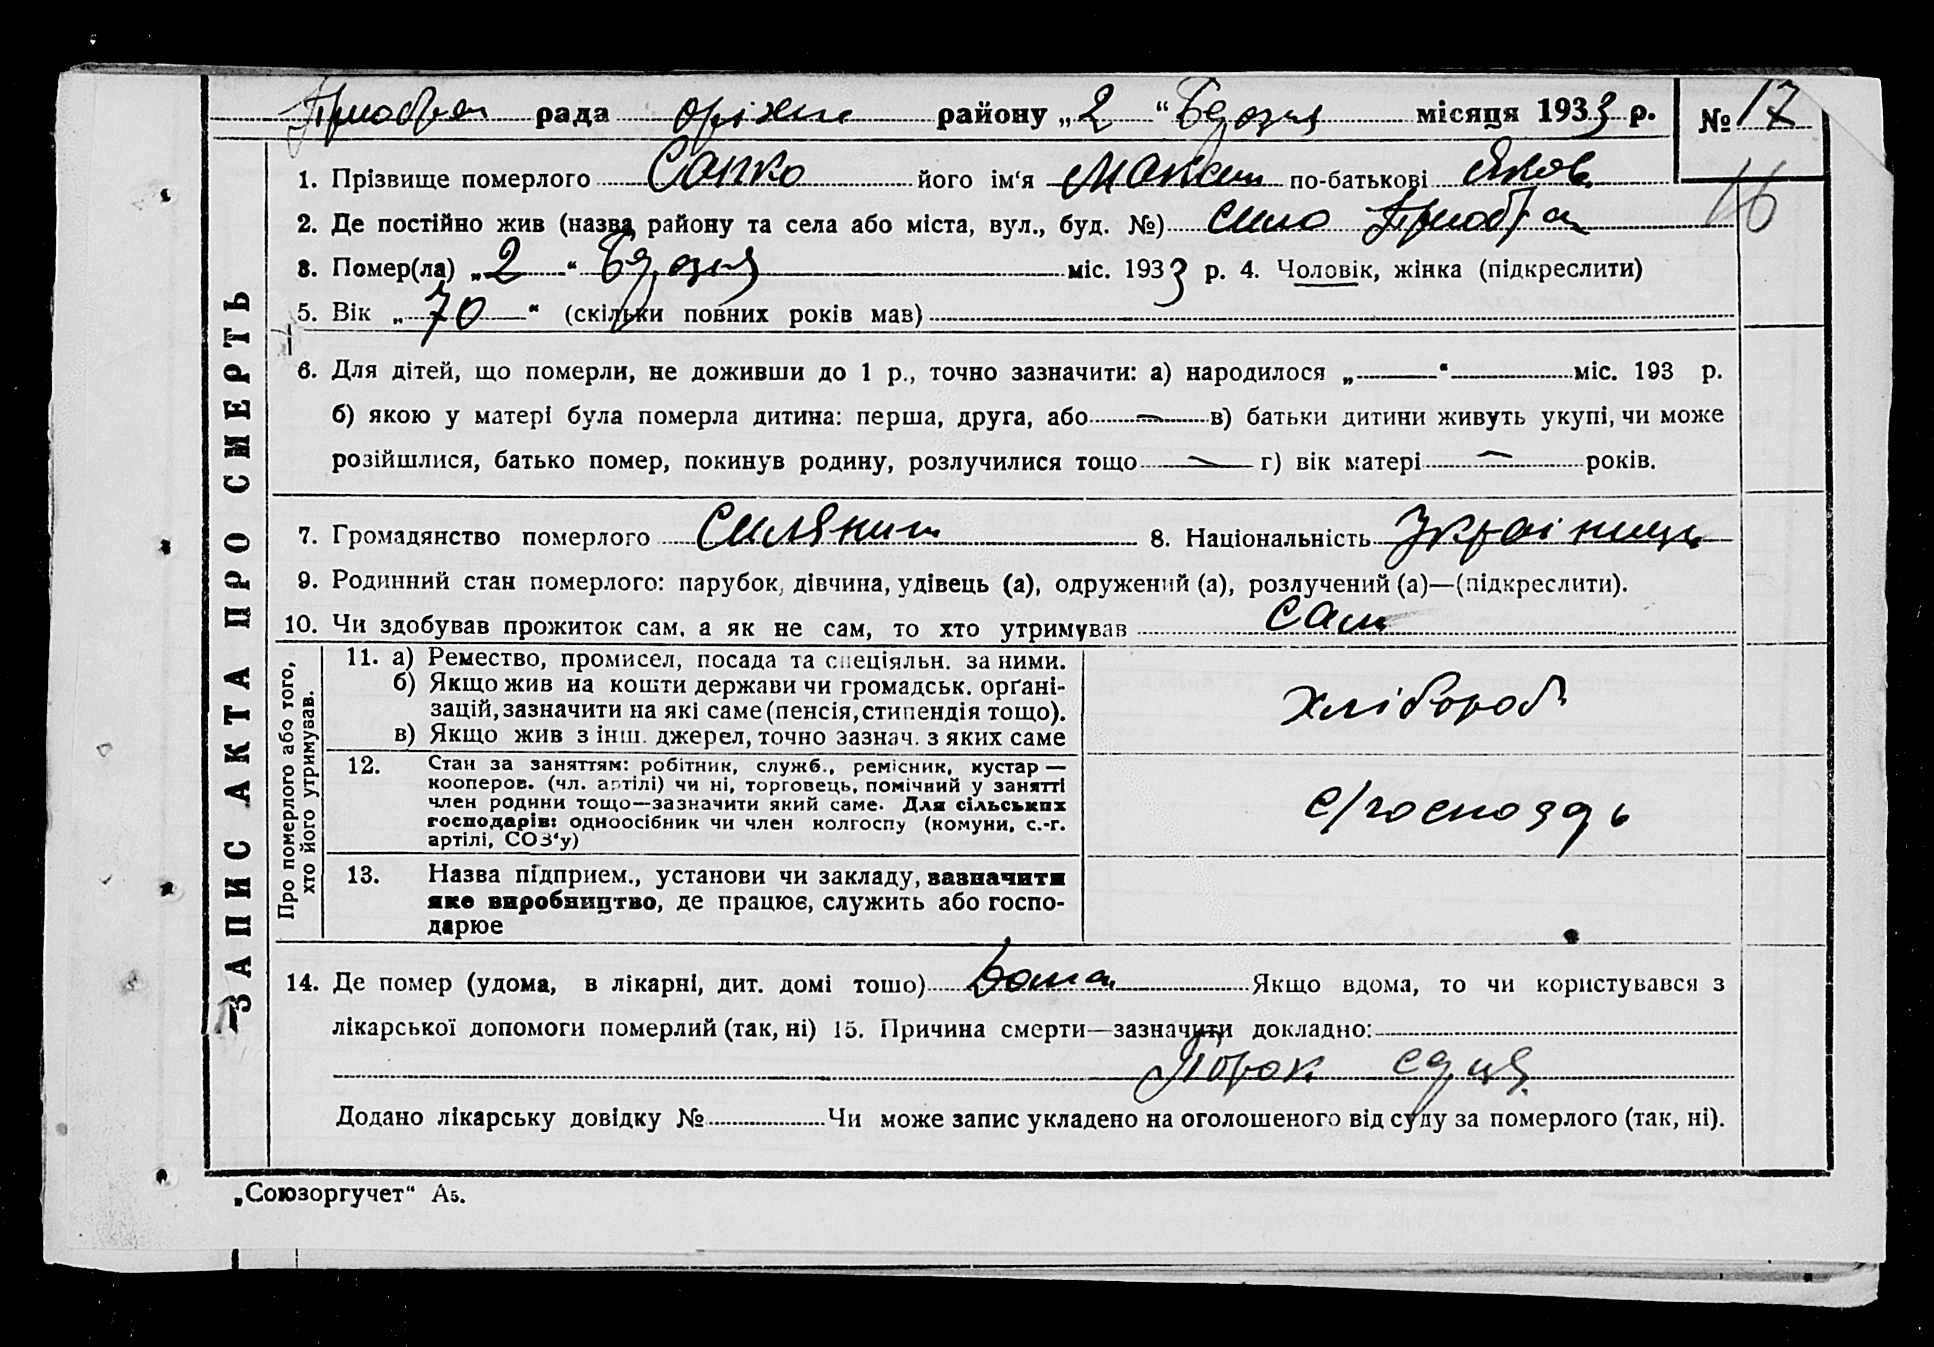 Приобра рада оріхів району „2“ Березня місяця 1933 р. № 17
1. Прізвище померлого Сапко його ім'я Максим по-батькові Яков.
16
2. Де постійно жив (назва району та села або міста, вул., буд. №) село Приобра
3. Помер(ла) „2“ Березня міс. 1933 р. 4. Чоловік, жінка (підкреслити)
5. Вік „70“ (скільки повних років мав)
6. Для дітей, що померли, не доживши до 1 р., точно зазначити: а) народилося „—“ міс. 193 р.
б) якою у матері була померла дитина: перша, друга, або — в) батьки дитини живуть укупі, чи може
розійшлися, батько помер, покинув родину, розлучилися тощо — г) вік матері — років.
7. Громадянство померлого Силянин 8. Національність Українець
9. Родинний стан померлого: парубок, дівчина, удівець (а), одружений (а), розлучений (а)—(підкреслити).
10. Чи здобував прожиток сам, а як не сам, то хто утримував сам
ЗАПИС АКТА ПРО СМЕРТЬ
Про померлого або того,
хто його утримував.
11. а) Ремество, промисел, посада та спеціяльн. за ними.
б) Якщо жив на кошти держави чи громадськ. орґані-
зацій, зазначити на які саме (пенсія, стипендія тощо).
в) Якщо жив з інш. джерел, точно зазнач. з яких саме
хлібороб
12. Стан за заняттям: робітник, служб., ремісник, кустар —
кооперов. (чл. артілі) чи ні, торговець, помічний у занятті
член родини тощо—зазначити який саме. Для сільських
господарів: одноосібник чи член колгоспу (комуни, с.-г.
артілі, СОЗ'у)
с/господь
13. Назва підприєм., установи чи закладу, зазначити
яке виробництво, де працює, служить або госпо-
дарює
14. Де помер (удома, в лікарні, дит. домі тощо) Дома Якщо вдома, то чи користувався з
лікарської допомоги померлий (так, ні) 15. Причина смерти—зазначити докладно:
Порок сдця
Додано лікарську довідку № Чи може запис укладено на оголошеного від суду за померлого (так, ні).
„Союзоргучет“ А5.